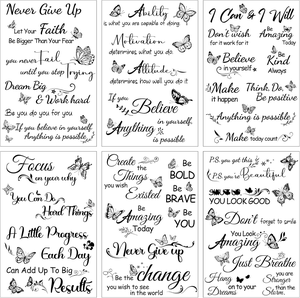 Never Give Up
Let Your Faith
Be Bigger Than Your Fear
you never Fail
until you stop trying
Dream Big
& Work hard
Be you do you for you
If you believe in yourself
Anything is possible
Ability is
what you are capable of doing
Motivation
determines what you do
Attitude
determines how well you do it
If you Believe
in yourself
Anything
is possible
I Can & I Will
Don't wish
for it work for it
Be
Amazing
Today
Believe
in yourself
Be
Kind
Always
Make
it happen
Think, Do,
Be positive
Anything is possible
Make today count
Focus
on your why
You Can Do
Hard Things
A Little Progress
Each Day
Can Add Up To Big
Results
Create
the Things
you wish
Existed
Be
BOLD
Be
BRAVE
Be
YOU
Be
Amazing
Today
Never Give up
Be the change
you wish to see
in the world
P.S. you got this
P.S. you're Beautiful
YOU LOOK GOOD
Don't forget to smile
You Look
Amazing
Just Breathe
Hang on to your
Dreams
You are
Stronger
than the
Storm